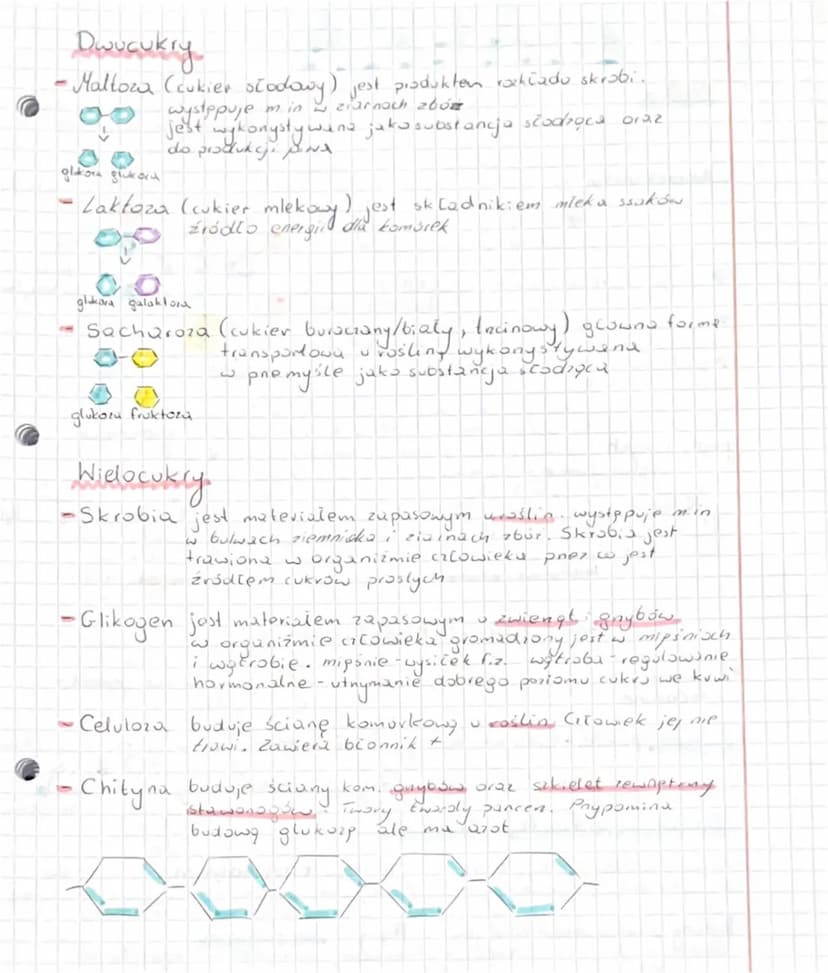 Dwucukry
- Maltoza (cukier słodowy) jest produktem rozkładu skrobi.
występuje m.in w ziarnach zbóż
jest wykorzystywana jako substancja słodząca oraz
do produkcji piwa
glukoza glukoza
- Laktoza (cukier mlekowy) jest składnikiem mleka ssaków
źródło energii dla komórek
glukoza galaktoza
- Sacharoza (cukier buraczany/biały, trzcinowy) główna forma
transportowa u rośliny wykorzystywana
w przemyśle jako substancja słodząca
glukoza fruktoza
Wielocukry
- Skrobia jest materiałem zapasowym u roślin. występuje m.in
w bulwach ziemniaka i ziarnach zbóż. Skrobia jest
trawiona w organizmie człowieka przez co jest
źródłem cukrów prostych
- Glikogen jest materiałem zapasowym u zwierząt i grzybów
w organizmie człowieka gromadzony jest w mięśniach
i wątrobie. mięśnie - wysiłek f.z. wątroba - regulowanie
hormonalne - utrzymanie dobrego poziomu cukru we krwi
- Celuloza buduje ścianę komurkową u roślin Człowiek jej nie
trawi. Zawiera błonnik +
- Chityna buduje ściany kom. grzybów oraz szkielet zewnętrzny
stawonogów. Tworzy twardy pancerz. Przypomina
budową glukozę ale ma azot